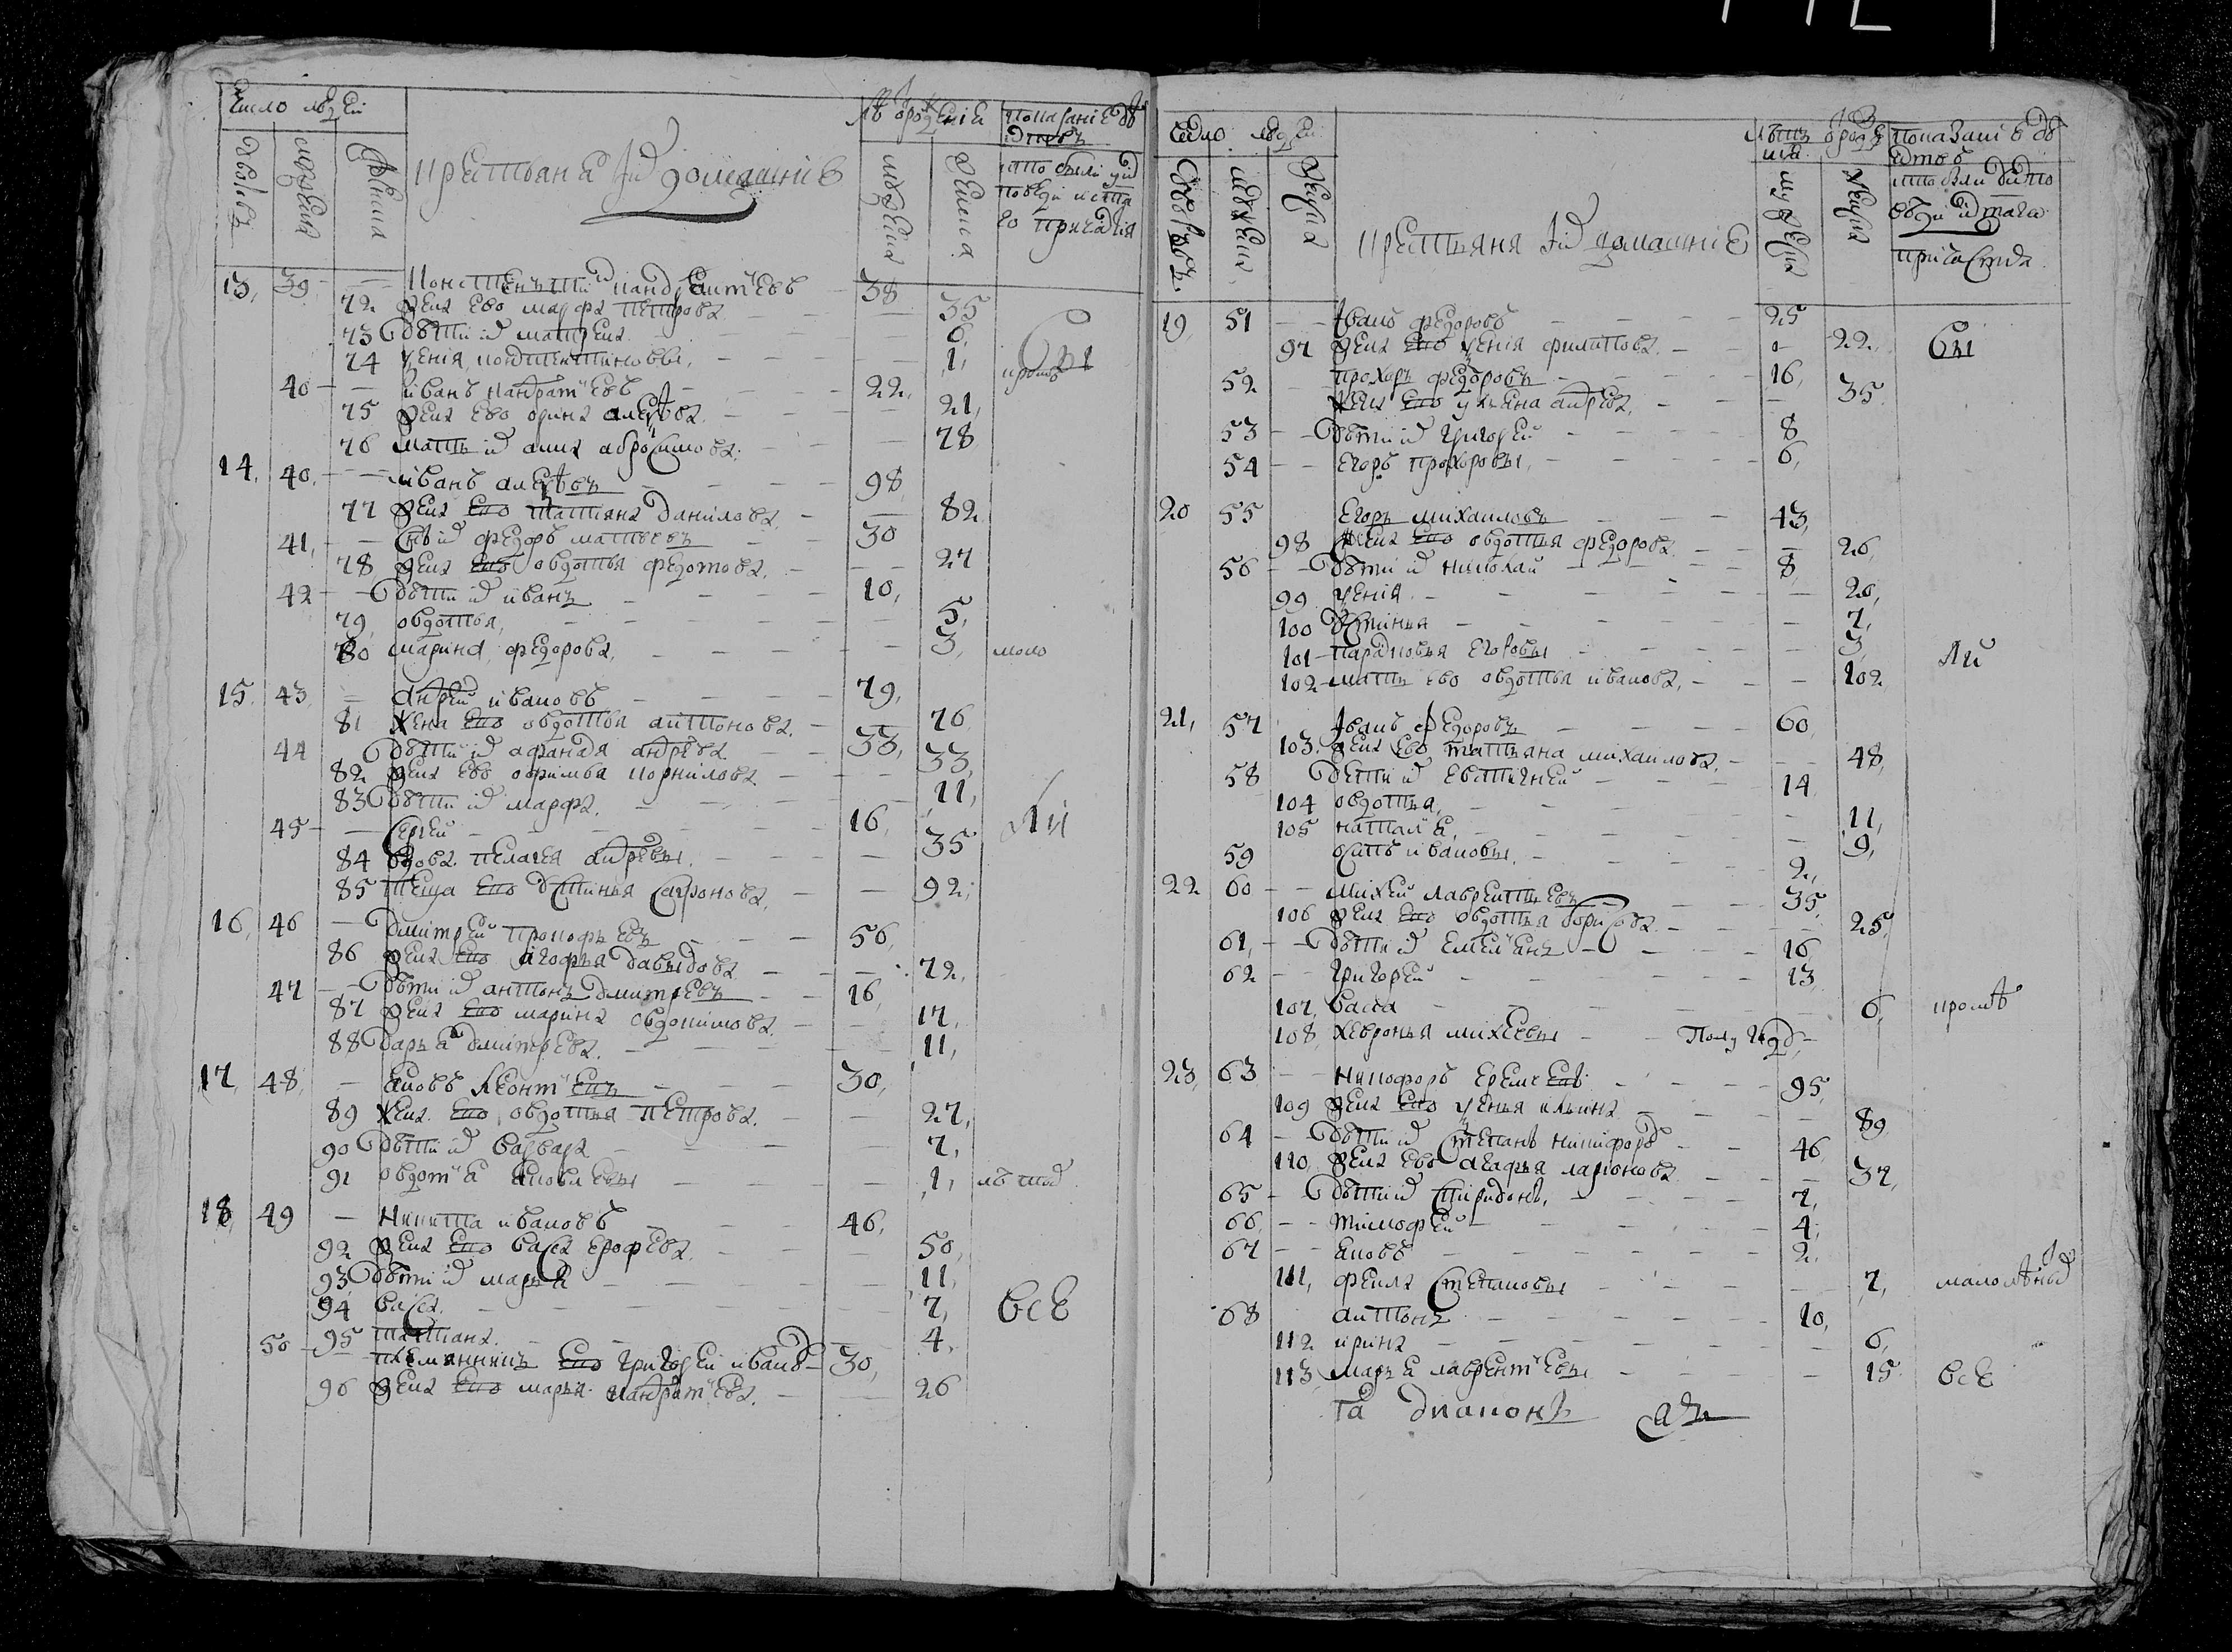 Число людей
дворовъ
мужеска
женска
крестьяня и домашние
лѣ? рождения
мужеска
женска
показание
кто были у
13, 39 — Констентинъ Кандратьевъ 38
72 жена ево марфа петрова — 35
73 дѣти их матрена — 6,
74 ѯения, констентиновы, — 1,
Бы
кромѣ
40 — иванъ Кандратьевъ 22,
75 жена ево орина алеѯѣева — 21,
76 мать их анна абросимова — 78
14, 40, — иванъ алеѯѣевъ — 98,
77 жена ево татьяна данилова — 82
41, — снъ их федоръ матвеевъ — 30
78 жена ево овдотья федотова, — 27
42 — дѣти их иванъ — 10,
79, овдотья, — 5,
80 марина, федорова, — 3, мало
15, 43, — андрей ивановъ — 79,
81 жена ево овдотья антонова, — 76,
44 дѣти их афанася андрѣева — 33,
82 жена ево офимья корнилова — 33,
83 дѣти их марфа, — 11,
45 — сергей — 16,
ли
84 вдова пелагея андревы — 35
85 теща ево устинья сафонова, — 92,
16, 46 — дмитрей прокофьевъ — 56,
86 жена ево агофья давыдова — 72,
47 — дѣти их антонъ дмитревъ — 16,
87 жена ево марина овдокимова — 17,
88 дарья дмитрева. — 11,
17, 48, — яковъ леонтьевъ — 30,
89 жена ево овдотья петрова. — 27,
90 дѣти их варвара — 7,
91 овдотья яковлевы — 1,
18, 49 — никита ивановъ — 46,
92 жена ево васса ерофѣева, — 50,
93, дѣти их марья — 11,
94 васса. — 7, всѣ
95 татьяна. — 4,
50 племянникъ ево григорей ивановъ — 30,
96 жена ево марья кандратьева. — 26
число людей
дворовъ.
мужеска
женска
крестьяня и домашние
мужеска
женска
показание
19, 51 — иванъ федоровъ — 25
97 жена ево ѯения филипова. — 22, бы
52 — прохоръ федоровъ — 16,
жена ево ульяна андрева, — 35
53 — дѣти их григорей — 8
54 — егоръ прохоровы, — 6,
20 55 егоръ михаиловъ — 43,
98 жена ево овдотья федорова — 26,
56 — дѣти их николай — 8,
99 ѯения — 20,
100 устинья — 7,
101 парасковья егоровы — 3, ли
102 мать ево овдотья иванова, — 102
21, 57 иванъ федоровъ — 60,
103, жена ево татьяна михаилова. — 48,
58 дѣти их евстигней — 14
104 овдотья, — 11,
105 наталья, — 9,
59 осипъ ивановы, — 2,
22 60 — михей лаврентьевъ — 35,
106 жена ево овдотья борисова — 25,
61, — дѣти их емельянъ — 16,
62 — григорей — 13,
107, васса — 6, кромѣ
108, хевронья михѣевы — полугод
23, 63 — никофоръ еремѣевъ — 95,
109 жена ево ѯенья ильина — 89
64 — дѣти их степанъ никифоровъ — 46,
110, жена ево агафья ларионова — 37,
65 — дѣти их спиридонъ, — 7,
66 — тимофей — 4,
67 — яковъ — 2,
111, фекла степановы — 7, малолѣтных
68 антонъ — 10,
112 ирина — 6,
113, марья лаврентьевы — 15 всѣ
та диаконъ